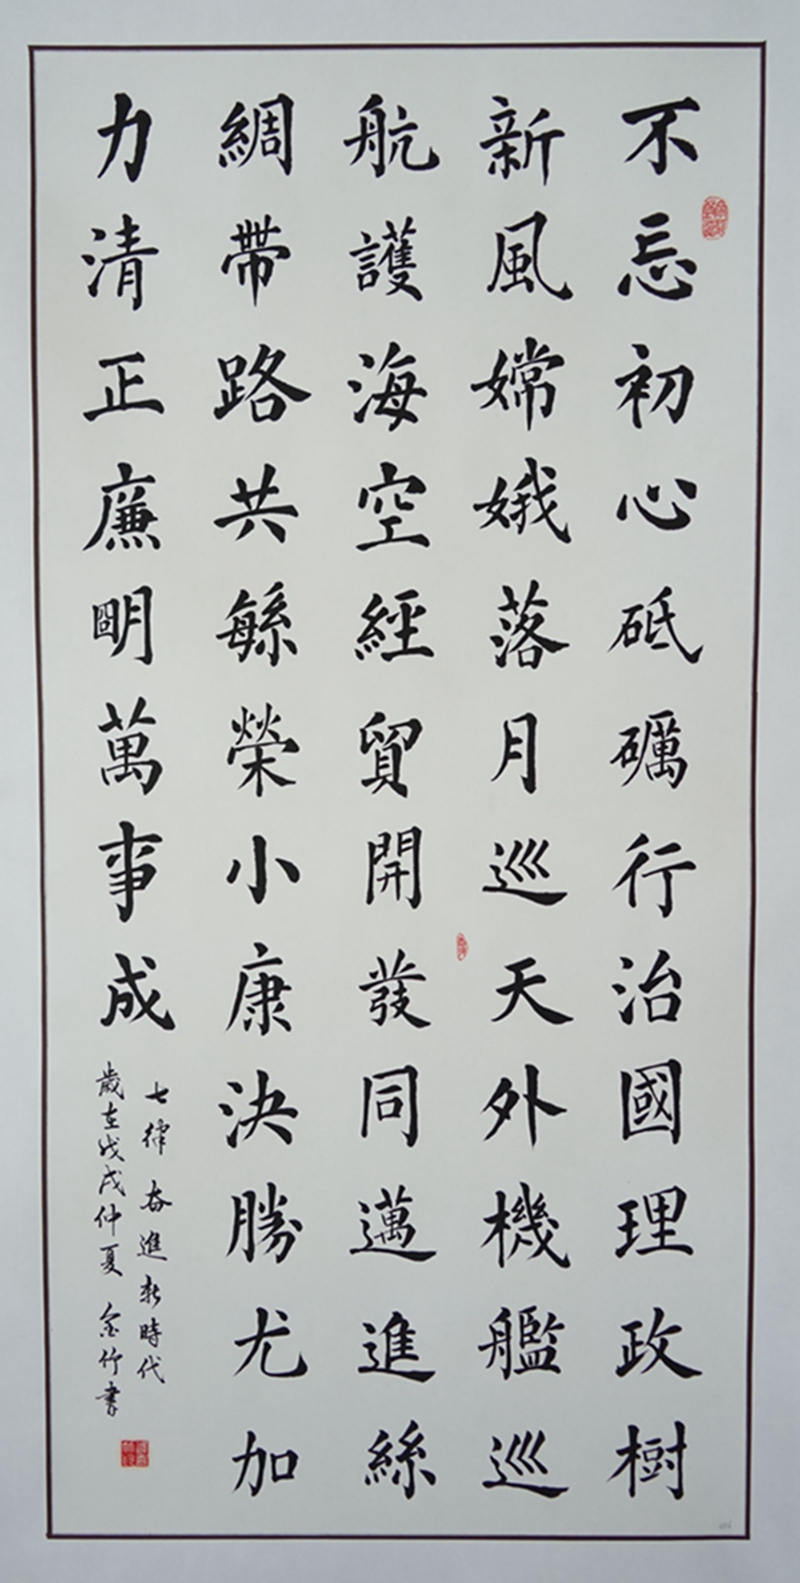 不忘初心砥礪行治國理政樹
新風嫦娥落月巡天外機艦巡
航護海空經貿開發同邁進絲
綢帶路共緐榮小康決勝尤加
力清正廉明萬事成
七律奋進新時代
歲在戊戌仲夏 金竹书